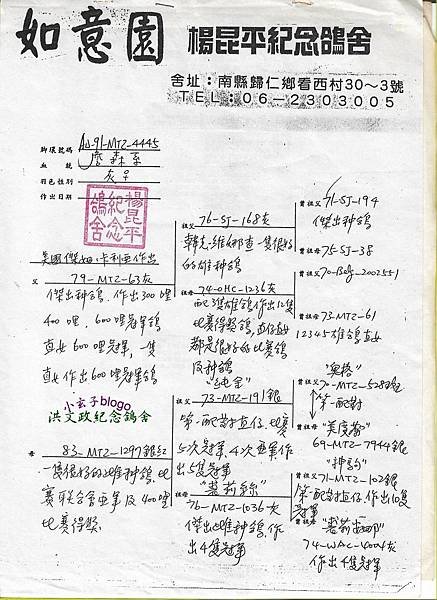 如意園 楊昆平紀念鴿舍
舍址：南縣歸仁鄉看西村30～3號
TEL：06－2303005
脚環號碼 AU-91-MTZ-4445
血統 詹森系
羽色性別 灰♀
作出日期
楊昆平紀念鴿舍
美國傑姆、卡利亞作出
父 79-MTZ-63灰
傑出种鴿．作出300哩
400哩．600哩冠軍鴿
直女600哩冠軍，一隻
直女作出600哩冠軍鴿
小玄子blogo
洪文政紀念鴿舍
母 83-MTZ-1297銀紅
一隻很好的雌种鴿．比
賽联合會亚軍及400哩
比賽得獎．
祖父 76-SJ-168灰
的雄种鴿
祖母 74-OHC-1236灰
配3隻雄鴿作出12隻
比賽得獎鴿，直仔直女
都是很好的比賽鴿
及种鴿
祖父 73-MTZ-191銀
第一配對直仔．比賽
5次冠軍．4次亚軍作
出5隻冠軍
祖母 76-MTZ-1036灰
傑出雌种鴿．作
出4隻冠軍
曾祖父 71-SJ-194
傑出种鴿
曾祖母 75-SJ-38
曾祖父 70-Belg-2002551
曾祖母 73-MTZ-61
12345雄鴿直女
曾祖父
第一配對
曾祖母
69-MTZ-7944銀
曾祖父 71-MTZ-102銀
第一配對直仔．作出10隻
冠軍
曾祖母
74-WAC-4004灰
作出4隻冠軍